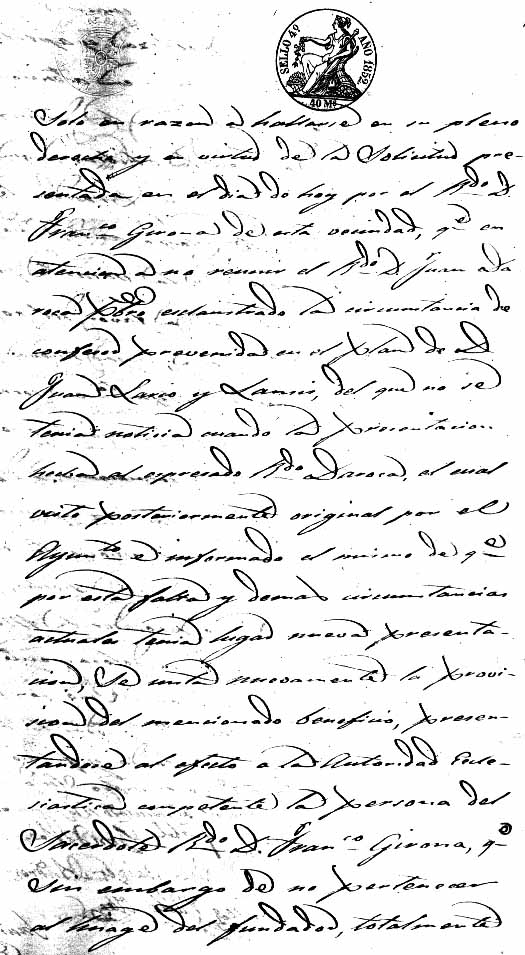 SELLO 4º AÑO 1852.
40 Ms
Solo en razon a hallarse en su pleno
derecho y en virtud de la Solicitud pre-
sentada en el dia de hoy por el Rdo. D.
Franco. Girona de esta vecindad, qe. en
atencion a no reunir el Rdo. D. Juan a Da
roca Pbro. esclaustrado la circunstancia de
prevenida en el plan de D.
Juan Lario y Lancis, del que no se
tenia noticia cuando la presentacion
hecha al espresado Rdo. Daroca, el cual
visto posteriormente original por el
Ayunto. e informado el mismo de qe.
por esta falta y demas circunstancias
actuales tenia lugar nueva presenta-
cion, Se nuevamente la provi-
sion del mencionado beneficio, presen-
tandose al efecto a la Autoridad Ecle-
siastica competente la persona del
Sacerdote Rdo. D. Franco. Girona, qe
sin embargo de no pertenecer
al linage del fundador, totalmente